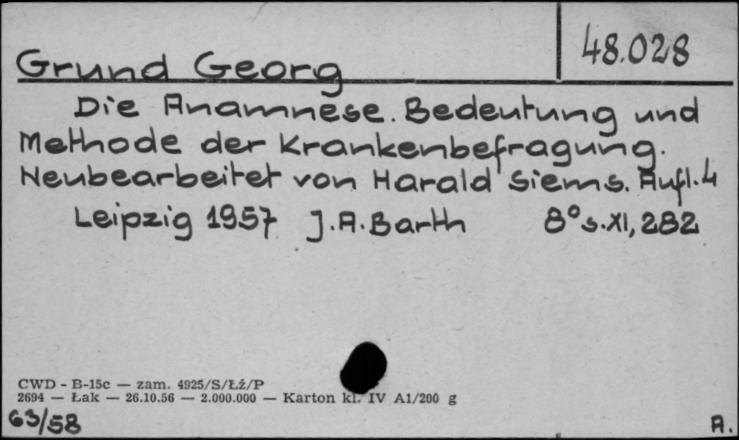 48.028
Grund Georg
Die Anamnese. Bedeutung und
Methode der Krankenbefragung.
Neubearbeitet von Harald Siems. Aufl. 4
Leipzig 1957 J.A. Barth 8° s. XI, 282
CWD - B-15c — zam. 4925/S/Łź/P
2694 — Łak — 26.10.56 — 2.000.000 — Karton kl. IV A1/200 g
63/58 A.